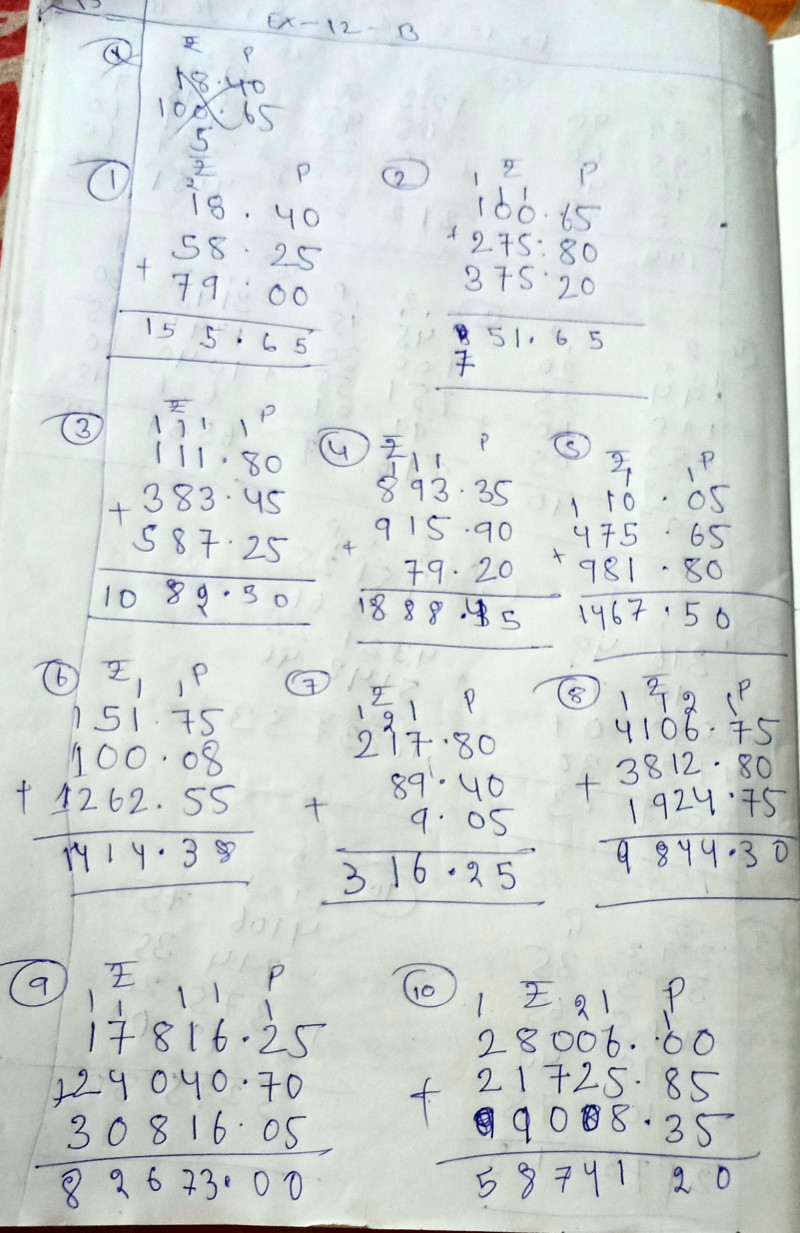 EX-12-B
① ₹ P
18.40
100.65
5
① ₹ P
2
18.40
58.25
+ 79.00
155.65
② 1 ₹ P
1 1
100.65
+ 275.80
375.20
851.65
7
③ ₹ P
1 1 1 1
111.80
+ 383.45
587.25
1082.50
④ ₹ P
1 1 1
893.35
915.90
+ 79.20
1888.45
⑤ ₹ P
1 1
110.05
475.65
+ 981.80
1467.50
⑥ ₹ P
1 1
151.75
100.08
+ 1262.55
1414.38
⑦ ₹ P
1 2 1
217.80
89.40
+ 9.05
316.25
⑧ ₹ P
1 1 2 1
4106.75
+ 3812.80
1924.75
9844.30
⑨ ₹ P
1 1 1 1 1
17816.25
+24040.70
30816.05
82673.00
⑩ ₹ P
1 2 1 1
28006.00
+ 21725.85
99008.35
58741 20